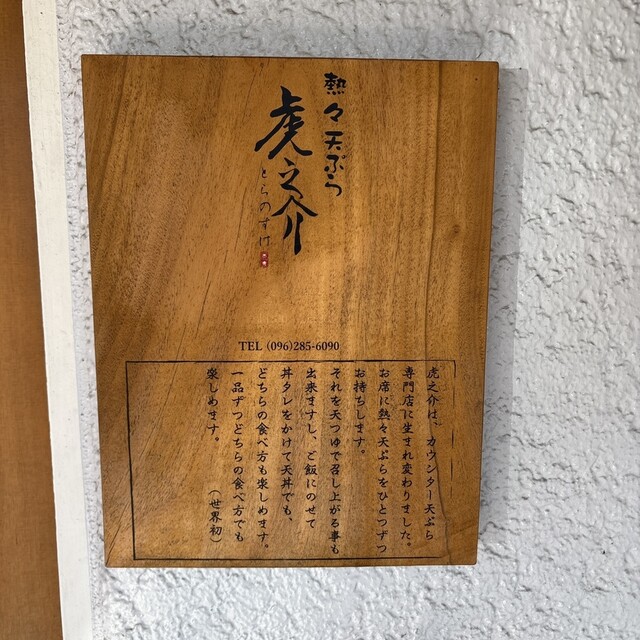 熱々天ぷら
虎之介
とらのすけ
TEL (096)285-6090
虎之介は、カウンター天ぷら
専門店に生まれ変わりました。
お席に熱々天ぷらをひとつずつ
お持ちします。
それを天つゆで召し上がる事も
出来ますし、ご飯にのせて
丼タレをかけて天丼でも、
どちらの食べ方も楽しめます。
一品ずつどちらの食べ方でも
楽しめます。
（世界初）